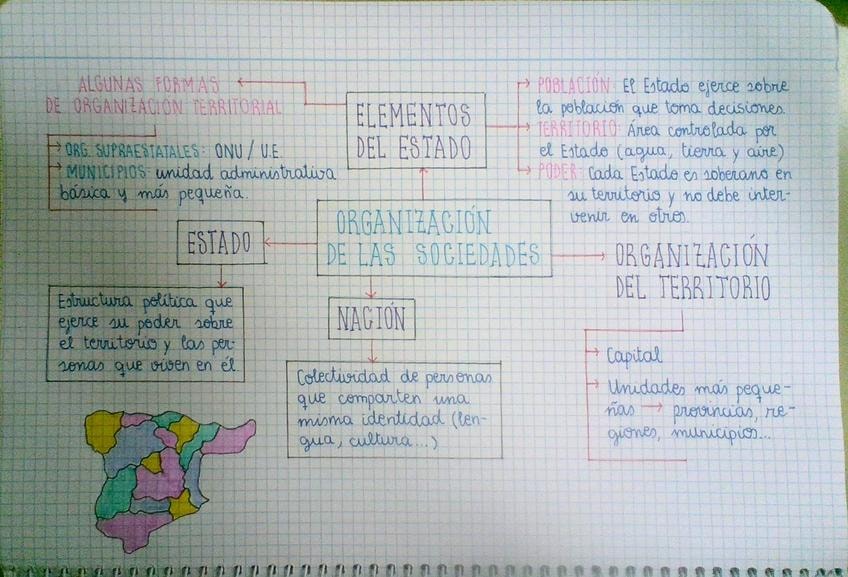 ALGUNAS FORMAS
DE ORGANIZACIÓN TERRITORIAL
ORG. SUPRAESTATALES: ONU / U.E.
MUNICIPIOS: unidad administrativa
básica y más pequeña.
ELEMENTOS
DEL ESTADO
POBLACIÓN: El Estado ejerce sobre
la población que toma decisiones.
TERRITORIO: Área controlada por
el Estado (agua, tierra y aire)
PODER: Cada Estado es soberano en
su territorio y no debe inter-
venir en otros.
ESTADO
ORGANIZACIÓN
DE LAS SOCIEDADES
ORGANIZACIÓN
DEL TERRITORIO
Estructura política que
ejerce su poder sobre
el territorio y las per-
sonas que viven en él.
NACIÓN
Colectividad de personas
que comparten una
misma identidad (len-
gua, cultura...)
Capital
Unidades más peque-
ñas → provincias, re-
giones, municipios...